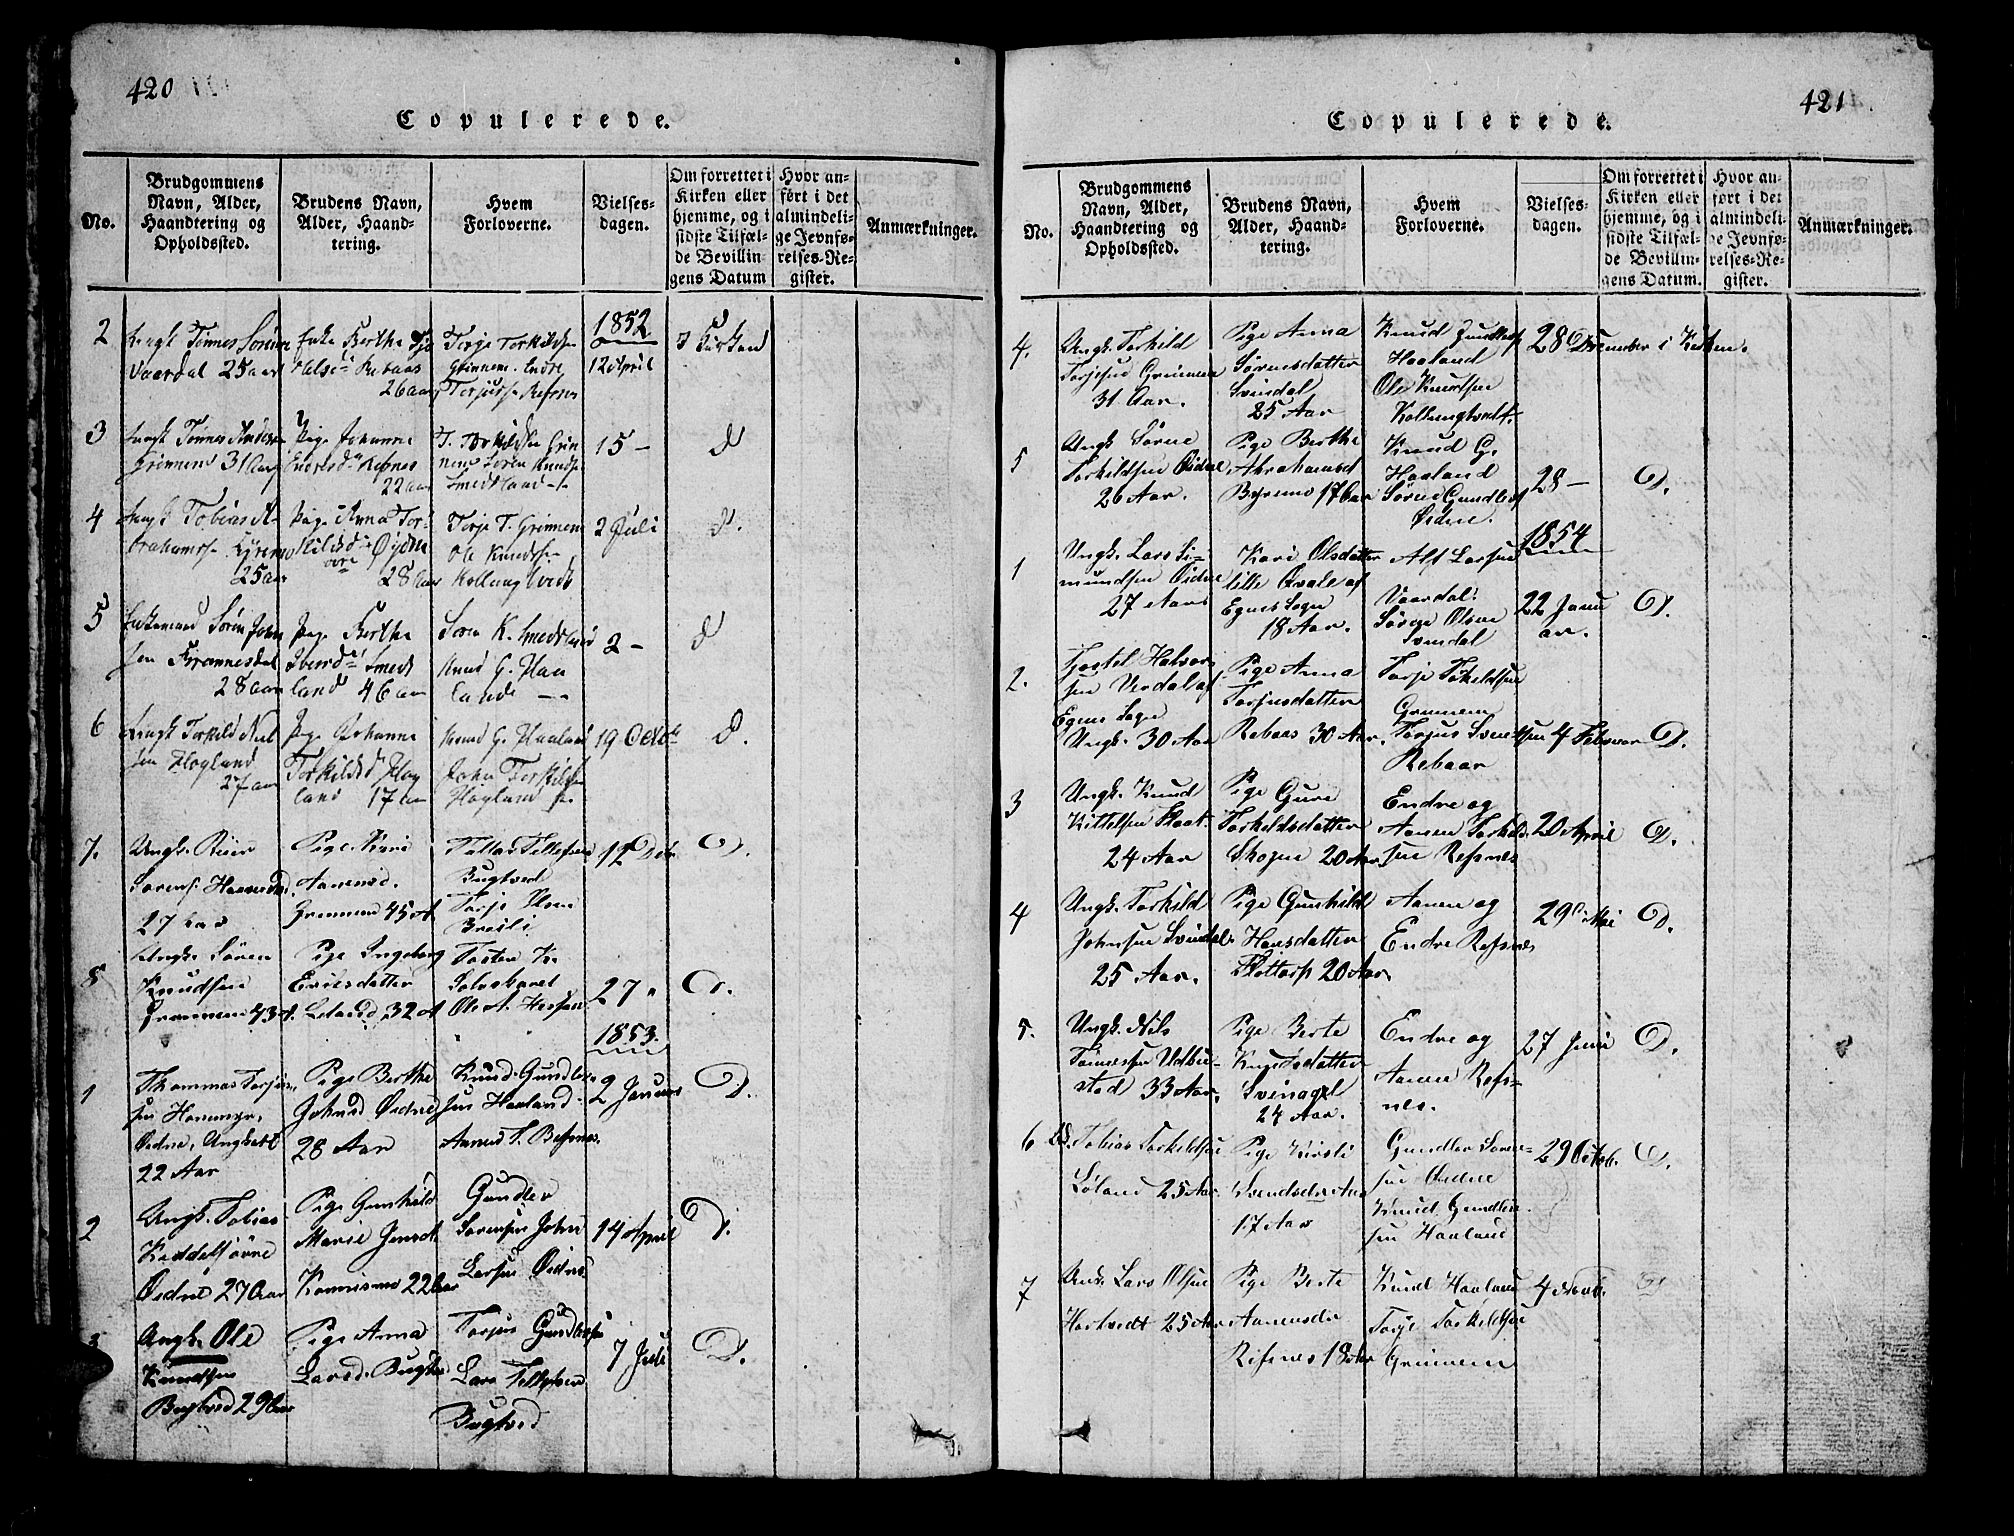 420
Copulerede.
No.
Brudgommens Navn, Alder, Haandtering og Opholdssted.
Brudens Navn, Alder, Haandtering.
Hvem Forloverne.
Vielsesdagen.
Om forrettet i Kirken eller hjemme, og i sidste Tilfælde Bevillingens Datum
Hvor anført i det almindelige Jevnførelses-Register.
Anmærkninger.
1852
2
Ungk Tønnes Sørens
Vaardal 25 aar
Enke Berthe
Rebaas
26 aar
Torje Torkilds
Grinnem. Endre
Torjus Refsnes
12 April
I Kirken
3
Ungk Tønnes Anders
Grinnem 31 Aar
Pige Johanne
Endresd Refsnes
22 aar
T. Torkildsen Grin
nem Søren Knuds
Smedsland
15 —
d
4
Ungk Tobias A
brahams Byremo
25 aar
Pige Anna Tor
kildsd Øidne
28 aar
Torje T. Grinnem
Ole Knuds
Kollungtvedt
2 Juli
d.
5
Enkemand Søren John
sen Fronnesdal
28 aar
Pige Berthe
Iversd Smeds
land 46 aar
Søren K. Smedsland
Knud G. Haa
land
2 —
d
6
Ungk Torkild Niel
sen Høgland
27 aar
Pige Johanne
Torkildsd Høg
land 17 aar
Knud G. Haaland
John Torkilds
Høgland
19 Octbr
d.
7.
Ungk.
Sørens.
27 Aar
Pige
Aanensd.
45 A
Tallas Tellefsen
Bugtved
Torje Olsen
Breili
12 Debr
D.
8
Ungk. Søren
Knudsen
43 A.
Pige Ingeborg
Ericsdatter
Leland 32 A
Torsten K.
Ole A.
27 "
D.
1853.
1
Thommas Torjus
sen Hommyr,
Øidne, Ungkarl
22 Aar
Pige Berthe
Johnsd Øidne
28 Aar
Knud Gundler
sen Haaland
Aanen T. Refsnes
2 Januar
D.
2
Ungk. Tobias
Keddelsønne
Øidne 27 Aar
Pige Gunhild
Marie Jensdt
22 Aar
Gundler
Sørensen John
Larsen Øidne
14 April
D.
3
Ungk. Ole
Knudsen
Bugtved 29 Aar
Pige Anna
Larsd. Bugtve
Torjus Gundlersen
Lars Tellefsen
Bugtved
7 Juli
D.
421
Copulerede.
No.
Brudgommens Navn, Alder, Haandtering og Opholdssted.
Brudens Navn, Alder, Haandtering.
Hvem Forloverne.
Vielsesdagen.
Om forrettet i Kirken eller hjemme, og i sidste Tilfælde Bevillingens Datum.
Hvor anført i det almindelige Jevnførelses-Register.
Anmærkninger.
4.
Ungk. Torkild
Torjesen Grinnem
31 Aar.
Pige Anna
Sørensdatter
Svindal
25 Aar
Knud Gundlers
Haaland
Ole Knudsen
Kollungtvedt.
28 December i Kirken.
5
Ungk. Sørne
Torkildsen Øidne
26 Aar.
Pige Berthe
Abrahamsd
Byremo 17 Aar
Knud G.
Haaland
Sørne Gundlers
Øidne.
28 —
D.
1854
1
Ungk. Lars Si-
mundsen Øidne
27 Aar
Kari Olsdatter
lille Qvale af
Egnes Sogn
18 Aar.
Alf Larsen
Vaardal.
Sørge Olsen
Svindal
22 Janu
ar.
D.
2.
Tjostel Halvor
sen Verdal af
Egnes Sogn
Ungk. 30 Aar
Pige Anna
Torjusdatter
Rebaas 30 Aar.
Torje Torkildsen
Grinnem
Torjus Svendsen
Rebaas
4 Februar
D.
3
Ungk. Knud
Kittelsen Flaat.
24 Aar
Pige Gure
Torkeldsdatter
Skogen 20 Aar
Endre og
Aanen Torkild
sen Refsnes
20 April
D.
4
Ungk. Torkild
Johnsen Svindal
25 Aar.
Pige Gunhild
Hansdatter
Flottorp 20 Aar
Aanen og
Endre Refsnes
29 Mai
D.
5.
Ungk. Nils
Tønnesen Udbu-
stad 33 Aar.
Pige Berte
Knudsdatter
Svinagel
24 Aar.
Endre og
Aanen Refs-
nes.
27 Juni
D.
6
Tobias Torkeldsen
Løland 25 Aar.
Pige Kirsti
Svendsdatter
17 Aar
Gundler Søren-
sen Øidne
Knud Gundler
sen Haaland
29 Octob.
D.
7
Ungk. Lars Olsen
Hortvedt 25 Aar
Pige Berte
Aanensdr
Refsnes 18 Aar
Knud Haaland
Torje Torkeldsen
Grinnem
4 Novb.
D